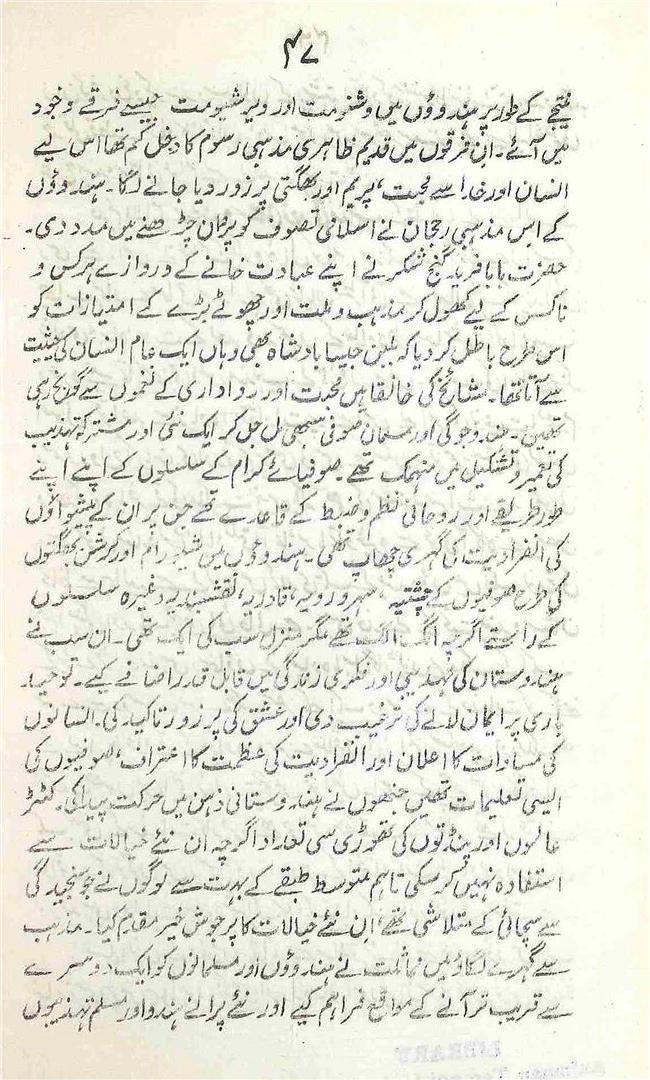 ۴۷
نتیجے کے طور پر ہندوؤں میں وشنومت اور ویرشیومت جیسے فرقے وجود
میں آئے۔ ان فرقوں میں قدیم ظاہری مذہبی رسوم کا دخل کم تھا اس لیے
انسان اور خدا سے محبت، پریم اور بھگتی پر زور دیا جانے لگا۔ ہندوؤں
کے اس مذہبی رجحان نے اسلامی تصوف کو پروان چڑھنے میں مدد دی۔
حضرت بابا فرید گنج شکر نے اپنے عبادت خانے کے دروازے ہر کس و
ناکس کے لیے کھول کر مذہب و ملت اور چھوٹے بڑے کے امتیازات کو
اس طرح باطل کر دیا کہ بلبن جیسا بادشاہ بھی وہاں ایک عام انسان کی حیثیت
سے آتا تھا۔ مشائخ کی خانقاہیں محبت اور رواداری کے نغموں سے گونج رہی
تھیں۔ ہندو جوگی اور مسلمان صوفی سبھی مل جل کر ایک نئی اور مشترکہ تہذیب
کی تعمیر و تشکیل میں منہمک تھے۔ صوفیائے کرام کے سلسلوں کے اپنے اپنے
طور طریقے اور روحانی نظم و ضبط کے قاعدے تھے جن پر ان کے پیشواؤں
کی انفرادیت کی گہری چھاپ تھی۔ ہندوؤں میں شیو، رام اور کرشن بھگتوں
کی طرح صوفیوں کے چشتیہ، سہروردیہ، قادریہ، نقشبندیہ وغیرہ سلسلوں
کے راستے اگرچہ الگ الگ تھے مگر منزل سب کی ایک تھی۔ ان سب نے
ہندوستان کی تہذیبی اور فکری زندگی میں قابل قدر اضافے کیے۔ توحید
باری پر ایمان لانے کی ترغیب دی اور عشق کی پر زور تاکید کی۔ انسانوں
کی مساوات کا اعلان اور انفرادیت کی عظمت کا اعتراف، صوفیوں کی
ایسی تعلیمات تھیں جنھوں نے ہندوستانی ذہن میں حرکت پیدا کی۔ کٹر
عالموں اور پنڈتوں کی تھوڑی سی تعداد اگرچہ ان نئے خیالات سے
استفادہ نہیں کر سکی تاہم متوسط طبقے کے بہت سے لوگوں نے جو سنجیدگی
سے سچائی کے متلاشی تھے، ان نئے خیالات کا پر جوش خیر مقدم کیا۔ مذہب
سے گہرے لگاؤ میں مماثلت نے ہندوؤں اور مسلمانوں کو ایک دوسرے
سے قریب تر آنے کے مواقع فراہم کیے اور نئے پرانے ہندو اور مسلم تہذیبوں
LIBRARY